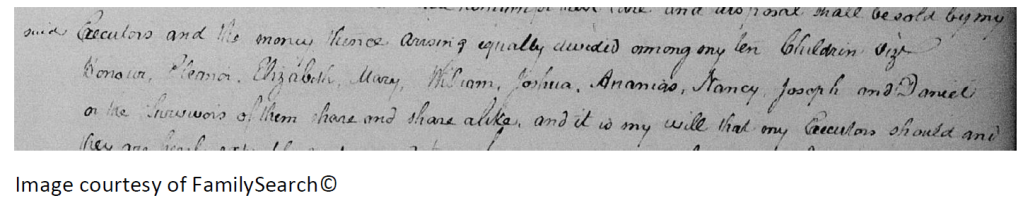 and disposal shall be sold by my
said Executors and the money thence arising equally divided among my ten Children viz
Honour, Eleanor, Elizabeth, Mary, William, Joshua, Ananias, Nancy, Joseph and Daniel
or the Survivors of them share and share alike, and it is my will that my Executors should and
they are
Image courtesy of FamilySearch©